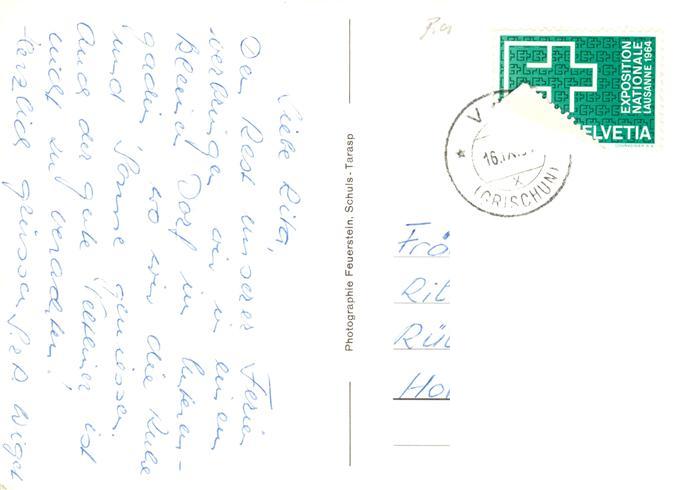 Liebe Rita,
Den Rest unserer Ferien
verbringen wir in einem
kleinen Dorf im Unteren-
gadin, wo wir die Ruhe
und Sonne geniessen.
Auch der gute Veltliner ist
nicht zu verachten!
Herzlich grüssen
Photographie Feuerstein, Schuls - Tarasp
EXPOSITION
NATIONALE
LAUSANNE 1964
HELVETIA
V
16.IX.
X
(GRISCHUN)
Frö
Rit
Rü
Ho